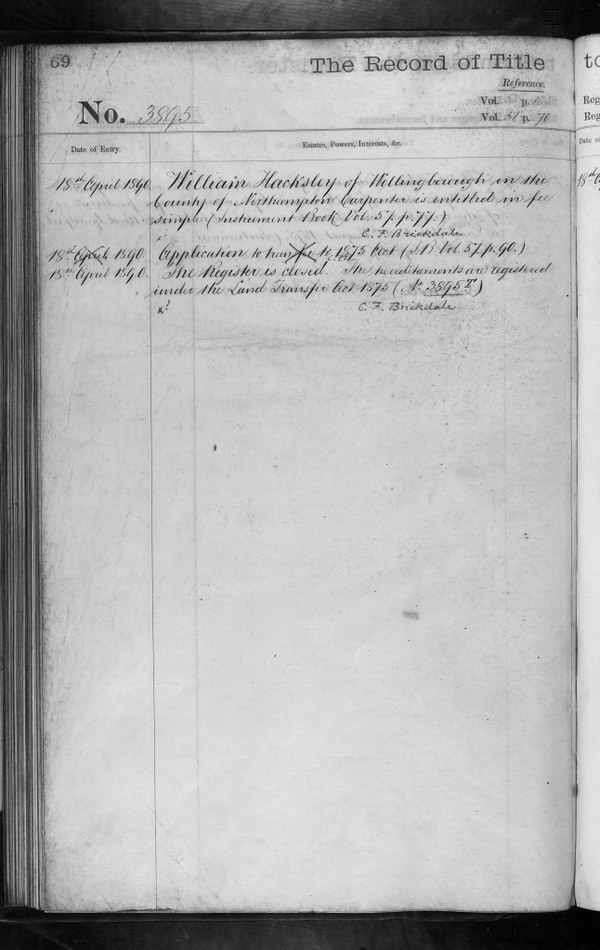 69
The Record of Title
Reference.
Vol. p.
No. 3895
Vol. 51 p. 70
Date of Entry.
Estates, Powers, Interests, &c.
18th April 1890 William Hacksley of Wellingborough in the
County of Northampton Carpenter is entitled in fee
simple (Instrument Book Vol. 57. p. 77.)
C. F. Brickdale
18th April 1890 Application to transfer to 1875 Act (I.B. Vol. 57. p. 90.)
18th April 1890. The Register is closed. The hereditaments are registered
under the Land Transfer Act 1875 (No. 3895 II)
C. F. Brickdale
to
Reg
Reg
Date of
18th A